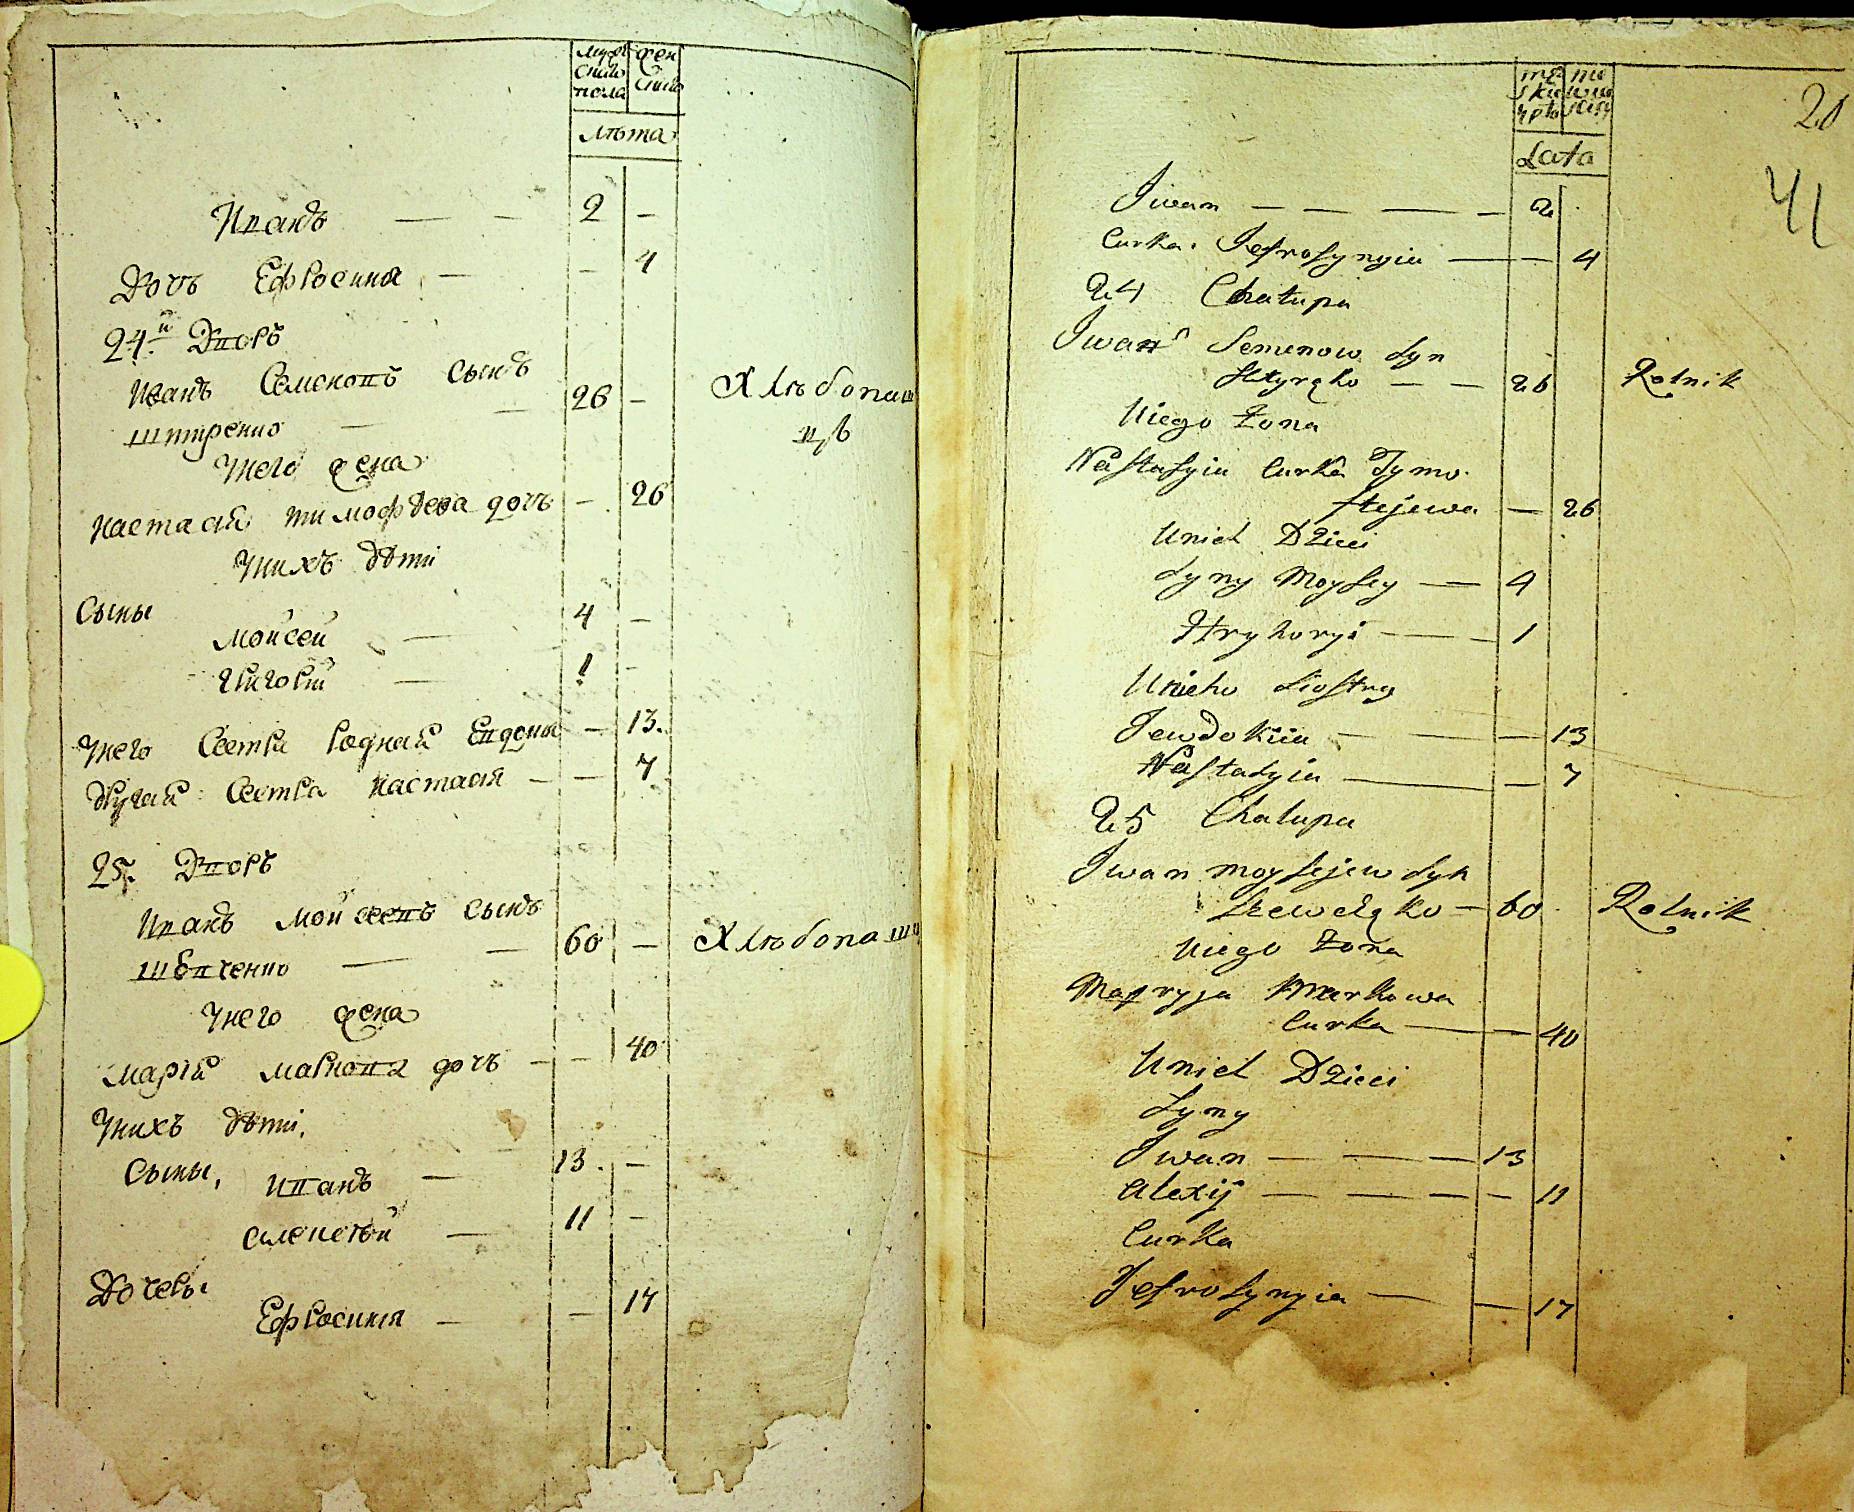 мужскаго пола
женскаго
лѣта
Иванъ — — 2 —
Дочъ Ефросиния — — 4
24.й Дворъ
Иванъ Семеновъ сынъ
Штиренко — — 26 — Хлѣбопашцъ
Унего жена
Настасия Тимофѣева дочъ — 26
Унихъ дѣти
Сыны
Мойсей — 4 —
Григорий — 1 —
Унего Сестра родная Евдокия — 13.
Другая Сестра Настасия — — 7
25. Дворъ
Иванъ Мойсеевъ сынъ
Шевченко — — 60 — Хлѣбопашц
Унего жена
Мария Маркова дочъ — — 40
Унихъ дѣти.
Сыны, Иванъ — 13. —
Алексѣй — 11 —
Дочеры
Ефросиния — — 17
20
41
Lata
Iwan — — — — 2
Curka. Jefrosynyia — — 4
24 Chałupa
Iwan Semenow Syn
Sztyręko — — 26 Rolnik
Uiego Żona
Nastasyia Curka Tymo-
ftejewa — 26
Unich Dzieci
Syny Moysey — 4
Hryhoryi — — 1
Unieho Siostry
Jewdokiia — — — 13
Nastasyia — — 7
25 Chałupa
Iwan Moysejew Syn
Szewczęko — 60 Rolnik
Uiego Żona
Maryja Markowa
Curka — — 40
Unich Dzieci
Syny
Iwan — — — 13
Alexij — — — — 11
Curka
Jefrosynyia — — 17